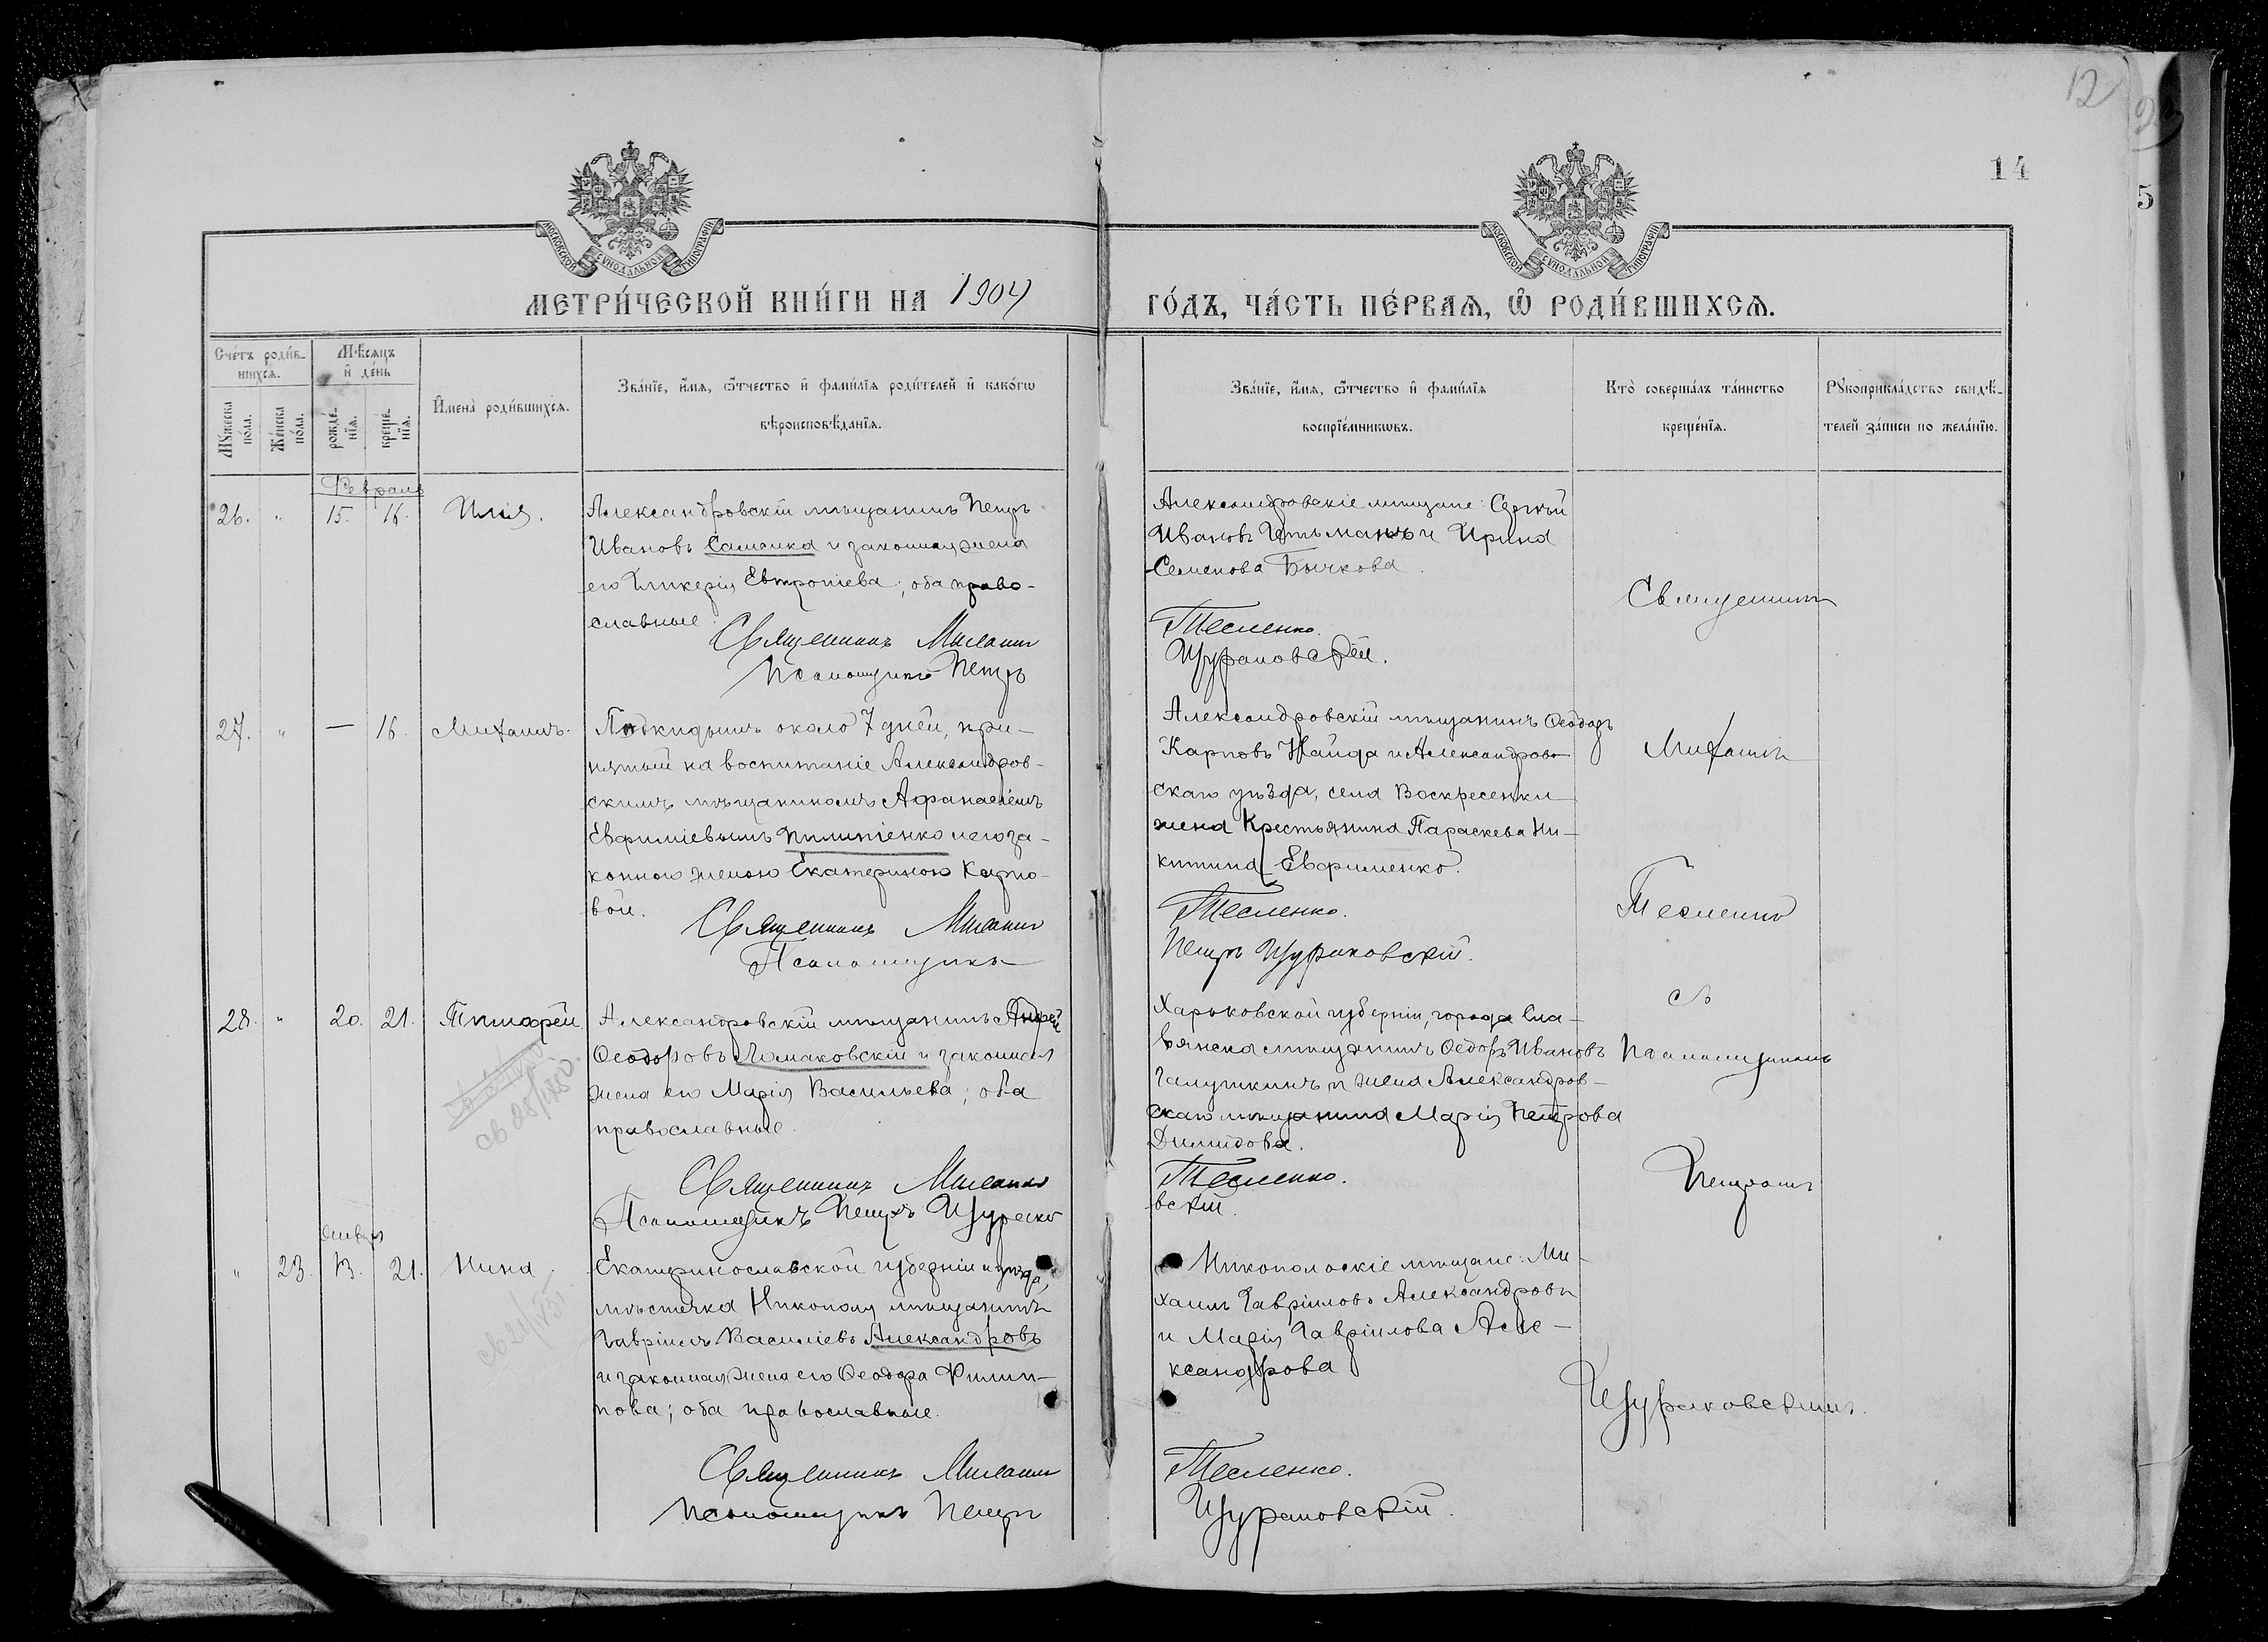 12
14
5
МОСКОВСКОЙ СѴНОДАЛЬНОЙ ТИПОГРАФІИ
МОСКОВСКОЙ СѴНОДАЛЬНОЙ ТИПОГРАФІИ
МЕТРИ́ЧЕСКОЙ КНИ́ГИ НА 1904 ГО́ДЪ, ЧА́СТЬ ПЕ́РВАѦ, Ѡ҆ РОДИ́ВШИХСѦ.
Сче́тъ роди́в-
шихсѧ.
Мꙋжеска по́ла.
Же́нска по́ла.
Мѣ́сѧцъ
и҆ де́нь
рожде́-
нїѧ.
креще́-
нїѧ.
И҆мена̀ роди́вшихсѧ.
Зва́нїе, и҆́мѧ, ѻ҆́тчество и҆ фами́лїѧ роди́телей и҆ како́гѡ
вѣроисповѣ́данїѧ.
Зва́нїе, и҆́мѧ, ѻ҆́тчество и҆ фами́лїѧ
воспрїе́мникѡвъ.
Кто̀ соверша́лъ та́инство
креще́нїѧ.
Рꙋкоприкла́дство свидѣ́-
телей за́писи по жела́нїю.
Февраль
26. " 15. 16. Илія.
Александровскій мѣщанинъ Петръ
Ивановъ Самойка и законная жена
его Гликерія Евтропіева; оба право-
славные.
Священникъ Михаилъ
Псаломщикъ Петръ
Александровскіе мѣщане: Сергѣй
Ивановъ Гетьманъ и Ирина
Семенова Бычкова.
Тесленко.
Щураковскій.
27. " — 16. Михаилъ.
Подкидышъ около 7 дней, при-
нятый на воспитаніе Александров-
скимъ мѣщаниномъ Афанасіемъ
Евфиміевымъ Пилипенко и его за-
конною женою Екатериною Карпо-
вой.
Священникъ Михаилъ
Псаломщикъ
Александровскій мѣщанинъ Ѳеодоръ
Карповъ Найда и Александров-
скаго уѣзда, села Воскресенки
жена Крестьянина Параскева Ни-
китина Евфименко.
Тесленко.
Петръ Щураковскій.
28. " 20. 21. Тимофей
св 28/
Александровскій мѣщанинъ Андрей
Ѳеодоровъ Ломаковскій и законная
жена его Марія Васильева; оба
православные.
Священникъ Михаилъ
Псаломщикъ Петръ Щурако
Харьковской губерніи, города Сла-
вянска мѣщанинъ Ѳедоръ Ивановъ
Галушкинъ и жена Александров-
скаго мѣщанина Марія Петрова
Димидова.
Тесленко.
вскій.
Январь
" 23. 13. 21. Нина.
Екатеринославской губерніи и уѣзда,
мѣстечка Никополя мѣщанинъ
Гавріилъ Василіевъ Александровъ
и законная жена его Ѳеодора Филип-
пова; оба православные.
Священникъ Михаилъ
Псаломщикъ Петръ
Никопольскіе мѣщане: Ми-
хаилъ Гавріиловъ Александровъ
и Марія Гавріилова Але-
ксандрова
Тесленко.
Щураковскій.
Священникъ
Михаилъ
Тесленко
съ
Псаломщикомъ
Петромъ
Щураковскимъ.